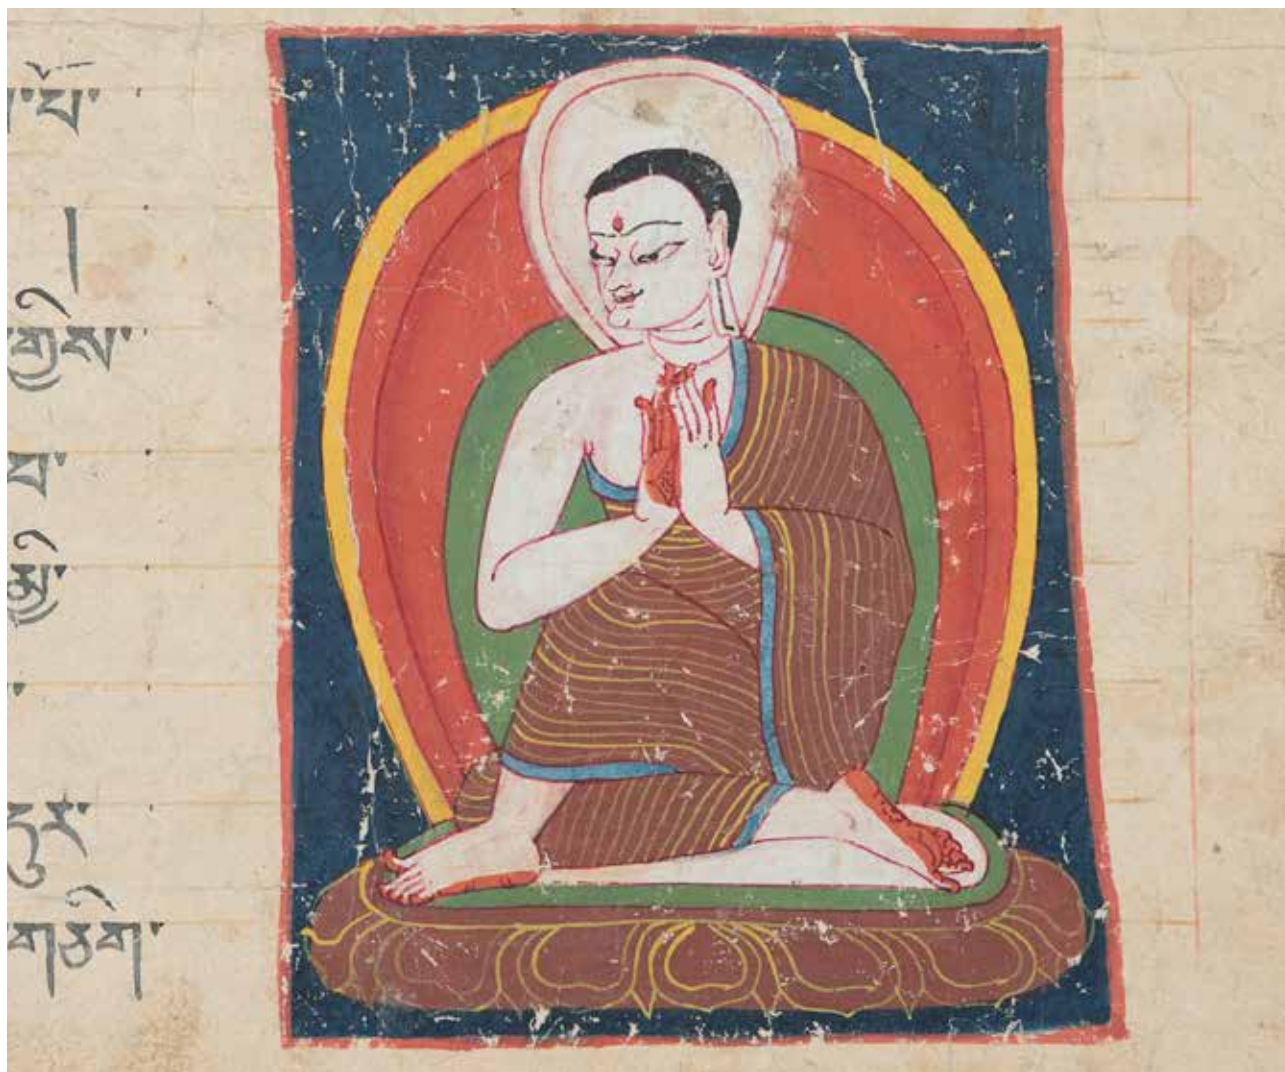 པོ་
།
གྱིས་
པ་
མྱི་
དུར་
གཅིག་